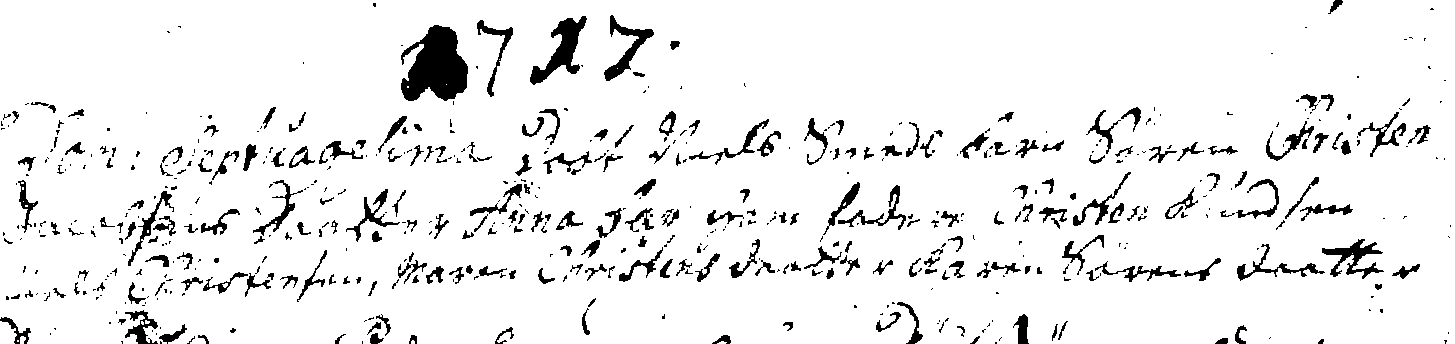 1717.
Dom: Septuagesima Døbt Niels Smeds barn Sören Christen
Jacobsens Daatter Anna bar ham fadere Christen Knudsen
Niels Christensen, Maren Christens daatter Karen Sörens daatter